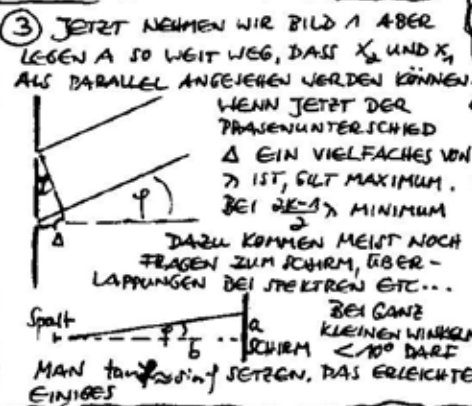 ③ JETZT NEHMEN WIR BILD 1 ABER
LEGEN A SO WEIT WEG, DASS X₂ UND X₁
ALS PARALLEL ANGESEHEN WERDEN KÖNNEN.
WENN JETZT DER
PHASENUNTERSCHIED
Δ EIN VIELFACHES VON
λ IST, GILT MAXIMUM.
BEI (2K-1)/2 λ MINIMUM
φ
φ
Δ
DAZU KOMMEN MEIST NOCH
FRAGEN ZUM SCHIRM, ÜBER-
LAPPUNGEN BEI SPEKTREN ETC...
Spalt
φ
b
a
SCHIRM
BEI GANZ
KLEINEN WINKELN
<10° DARF
MAN tanφ≈sinφ SETZEN. DAS ERLEICHTE
EINIGES